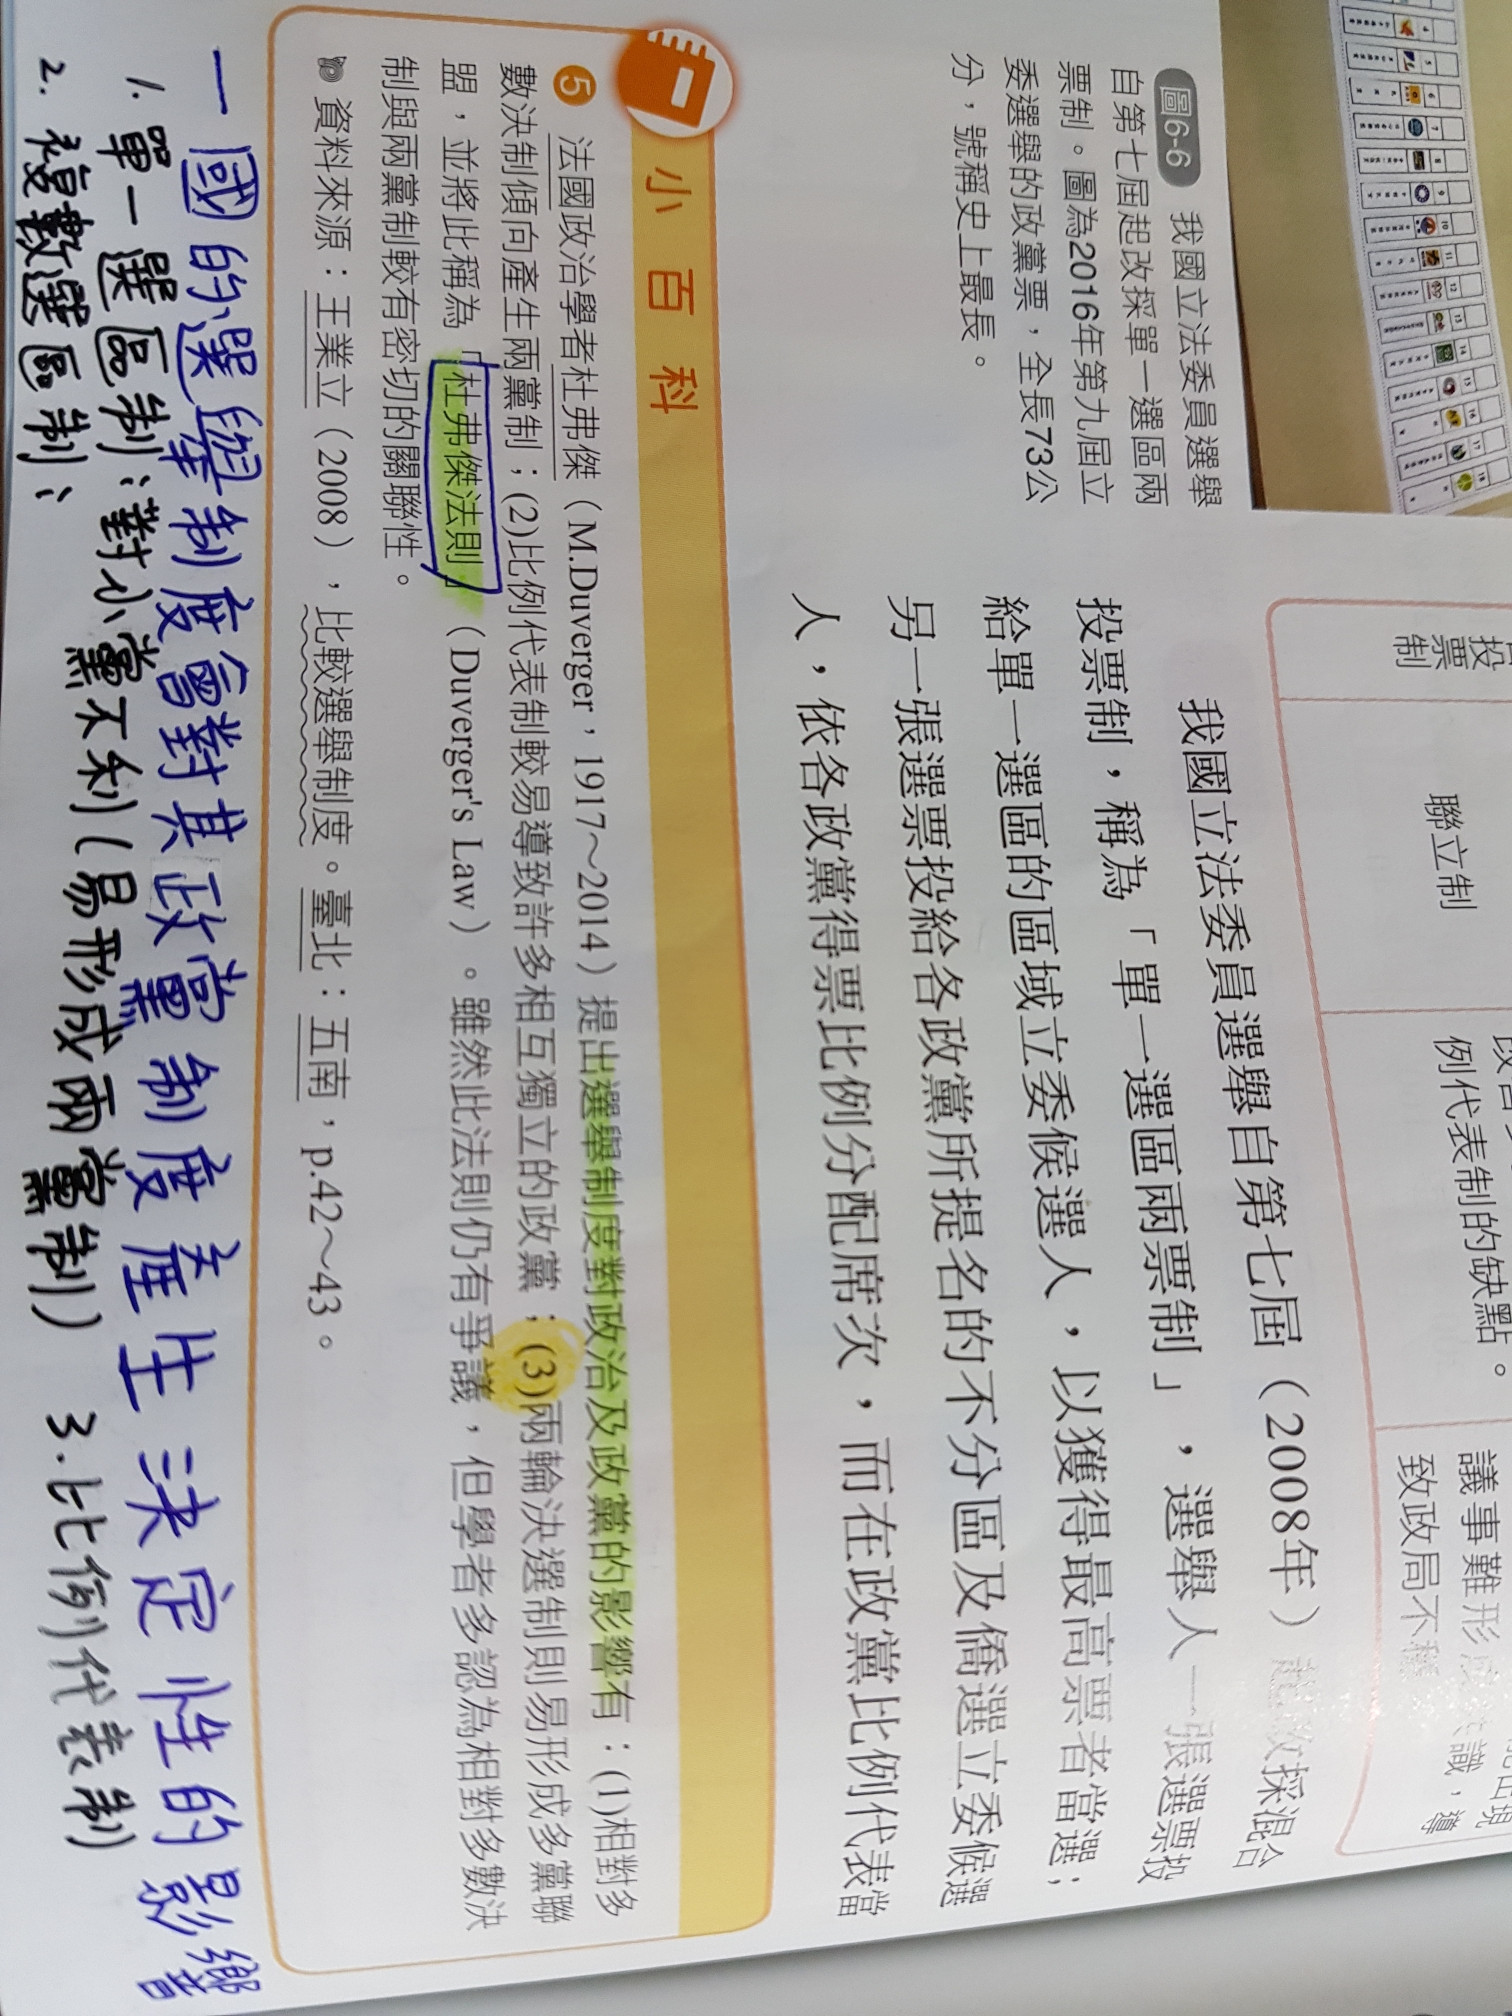 投票制
聯立制
例代表制的缺點。
議事難形
識，導
致政局不
圖6-6 我國立法委員選舉
自第七屆起改採單一選區兩
票制。圖為2016年第九屆立
委選舉的政黨票，全長73公
分，號稱史上最長。
我國立法委員選舉自第七屆（2008年）起改採混合
投票制，稱為「單一選區兩票制」，選舉人一張選票投
給單一選區的區域立委候選人，以獲得最高票者當選；
另一張選票投給各政黨所提名的不分區及僑選立委候選
人，依各政黨得票比例分配席次，而在政黨比例代表當
小百科
5 法國政治學者杜弗傑（M.Duverger，1917～2014）提出選舉制度對政治及政黨的影響有：(1)相對多
數決制傾向產生兩黨制；(2)比例代表制較易導致許多相互獨立的政黨；(3)兩輪決選制則易形成多黨聯
盟，並將此稱為「杜弗傑法則」（Duverger's Law）。雖然此法則仍有爭議，但學者多認為相對多數決
制與兩黨制較有密切的關聯性。
資料來源：王業立（2008），比較選舉制度。臺北：五南，p.42～43。
一國的選舉制度會對其政黨制度產生決定性的影響
1. 單一選區制：對小黨不利(易形成兩黨制)
2. 複數選區制： 3.比例代表制